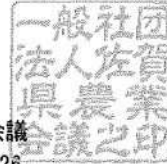 一般社団
法人佐賀
県農業
会議之印
会議
26